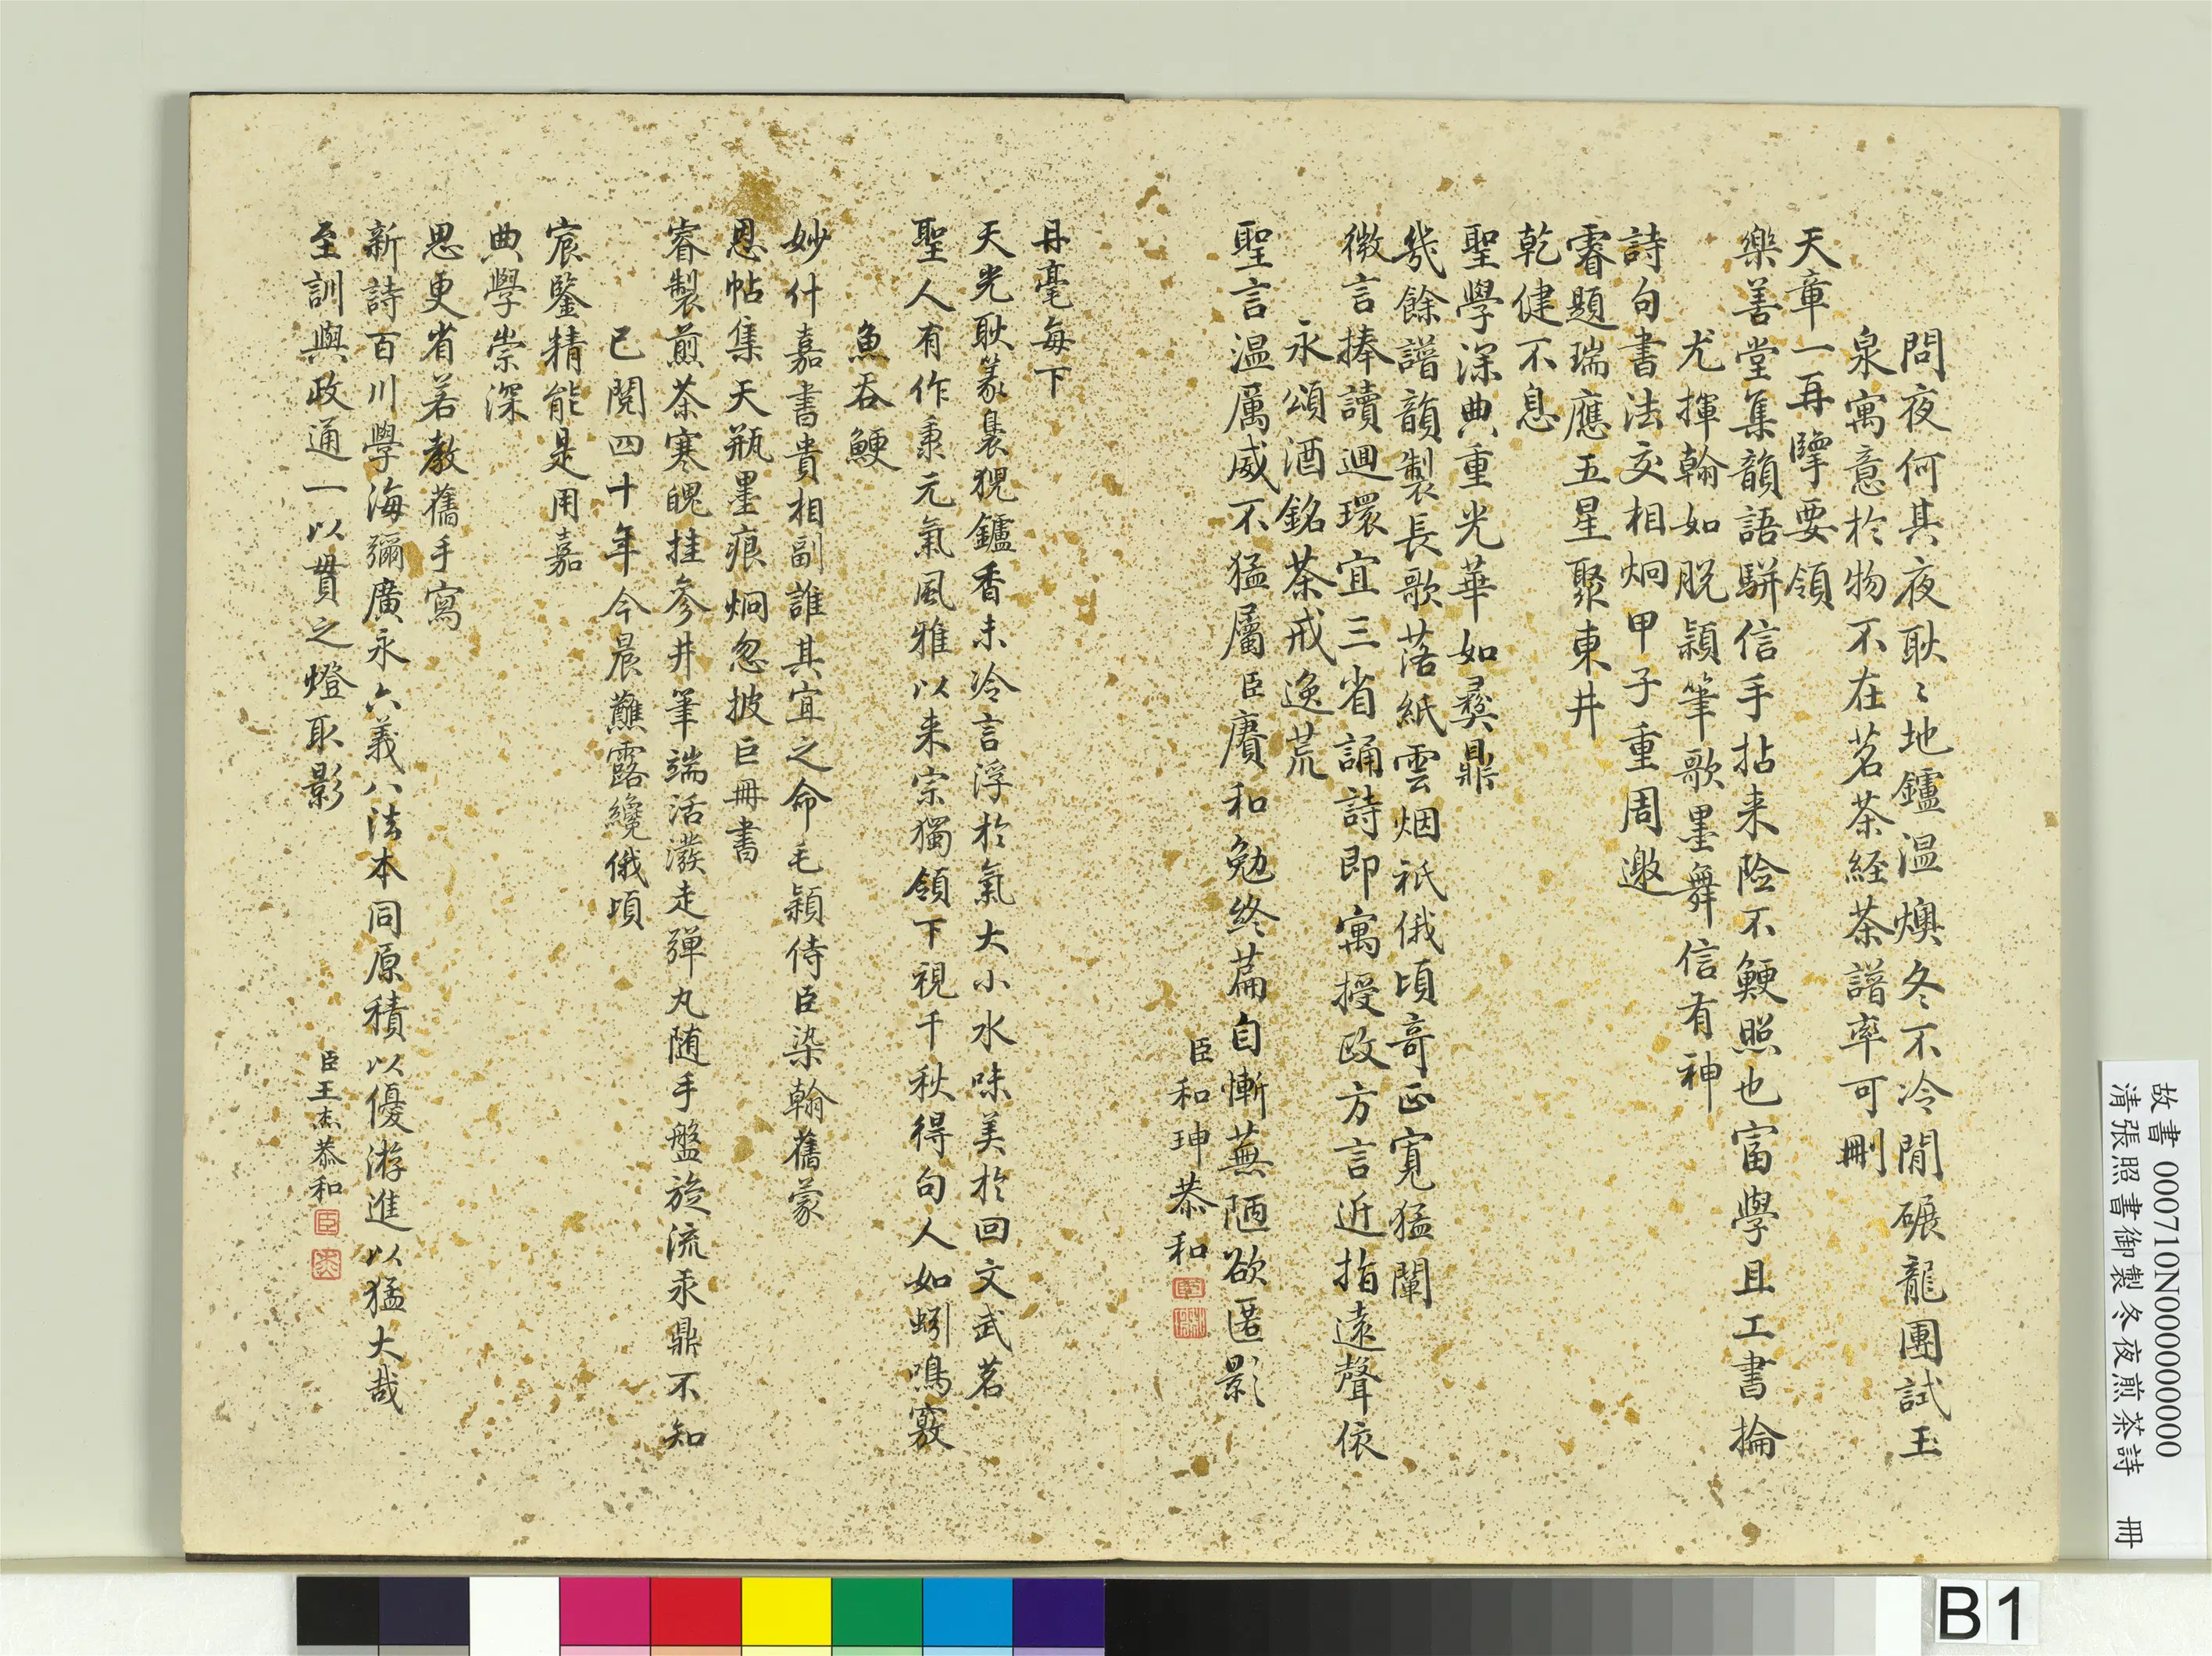 問夜何其夜耿〻地鑪温燠冬不冷閒碾龍團試玉
泉寓意於物不在茗茶経茶譜率可刪
天章一再擘要領
樂善堂集韻語駢信手拈来险不鯁照也富學且工書掄
尤揮翰如脱穎筆歌墨舞信有神
詩句書法交相炯甲子重周邀
睿題瑞應五星聚東井
乾健不息
聖學深典重光華如彝鼎
幾餘譜韻製長歌落紙雲烟祇俄頃奇正寬猛闡
微言捧讀迴環宜三省誦詩即寓授政方言近指遠聲依
永頌酒銘茶戒逸荒
聖言温厲威不猛屬臣賡和勉終篇自慚蕪陋欲匿影
臣和珅恭和
丹毫每下
天光耿篆裊猊鑪香未冷言浮於氣大小水味美於回文武茗
聖人有作秉元氣風雅以来宗獨領下視千秋得句人如蚓鳴竅
魚吞鯁
妙什嘉書貴相副誰其宜之命毛穎侍臣染翰舊蒙
恩帖集天瓶墨痕炯忽披巨冊書
睿製煎茶寒魄挂參井筆端活潑走彈丸随手盤旋流汞鼎不知
已閱四十年今晨蘸露纔俄頃
宸鑒精能是用嘉
典學崇深
思更省若教舊手寫
新詩百川學海彌廣永六義八法本同原積以優游進以猛大哉
至訓與政通一以貫之燈取影
臣王杰恭和
臣
杰
故書 000710N000000000
清張照書御製冬夜煎茶詩 冊
B1